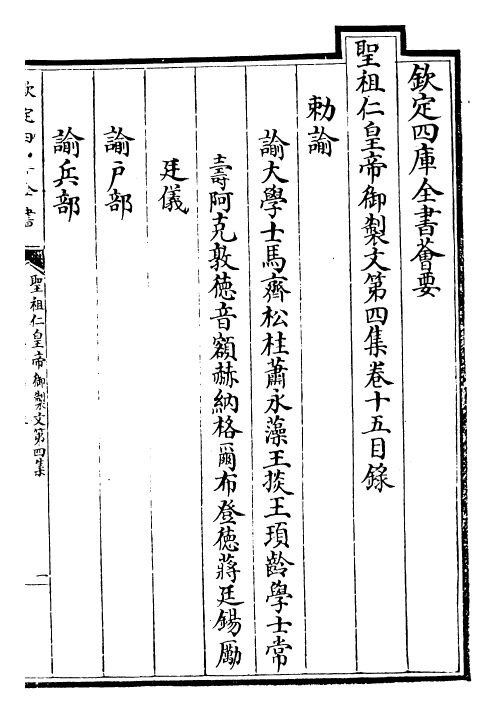 欽定四庫全書薈要
聖祖仁皇帝御製文第四集卷十五目錄
勅諭
諭大學士馬齊松柱蕭永藻王掞王頊齡學士常
壽阿克敦德音額赫納格爾布登德蔣廷錫勵
廷儀
諭戶部
諭兵部
欽定四庫全書
聖祖仁皇帝御製文第四集
一